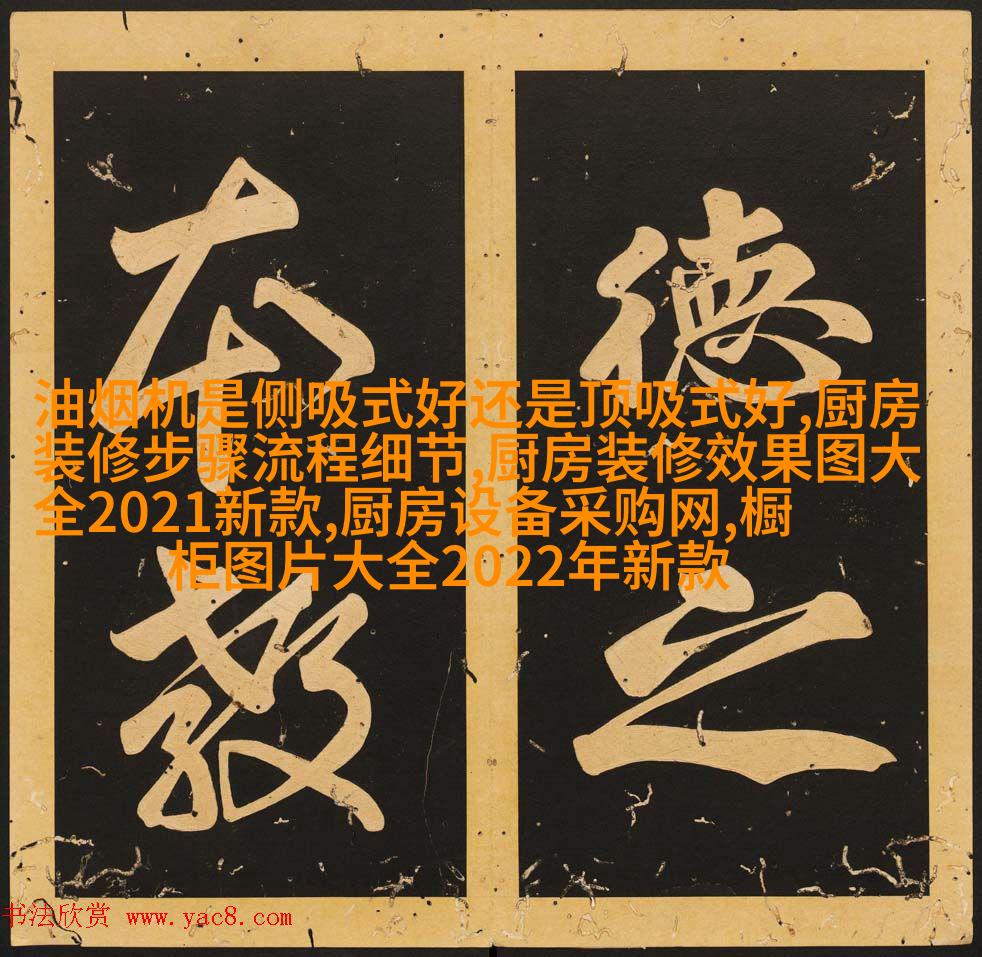 德之
本教
油烟机是侧吸式好还是顶吸式好,厨房
装修步骤流程细节,厨房装修效果图大
全2021新款,厨房设备采购网,橱
柜图片大全2022年新款
书法欣赏 www.yac8.com